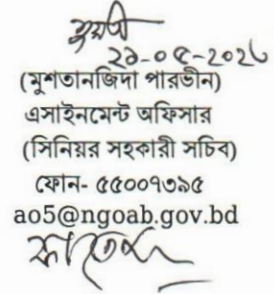 ২১-০৫-২০২৬
(মুশতানজিদা পারভীন)
এসাইনমেন্ট অফিসার
(সিনিয়র সহকারী সচিব)
ফোন- ৫৫০০৭৩৯৫
ao5@ngoab.gov.bd